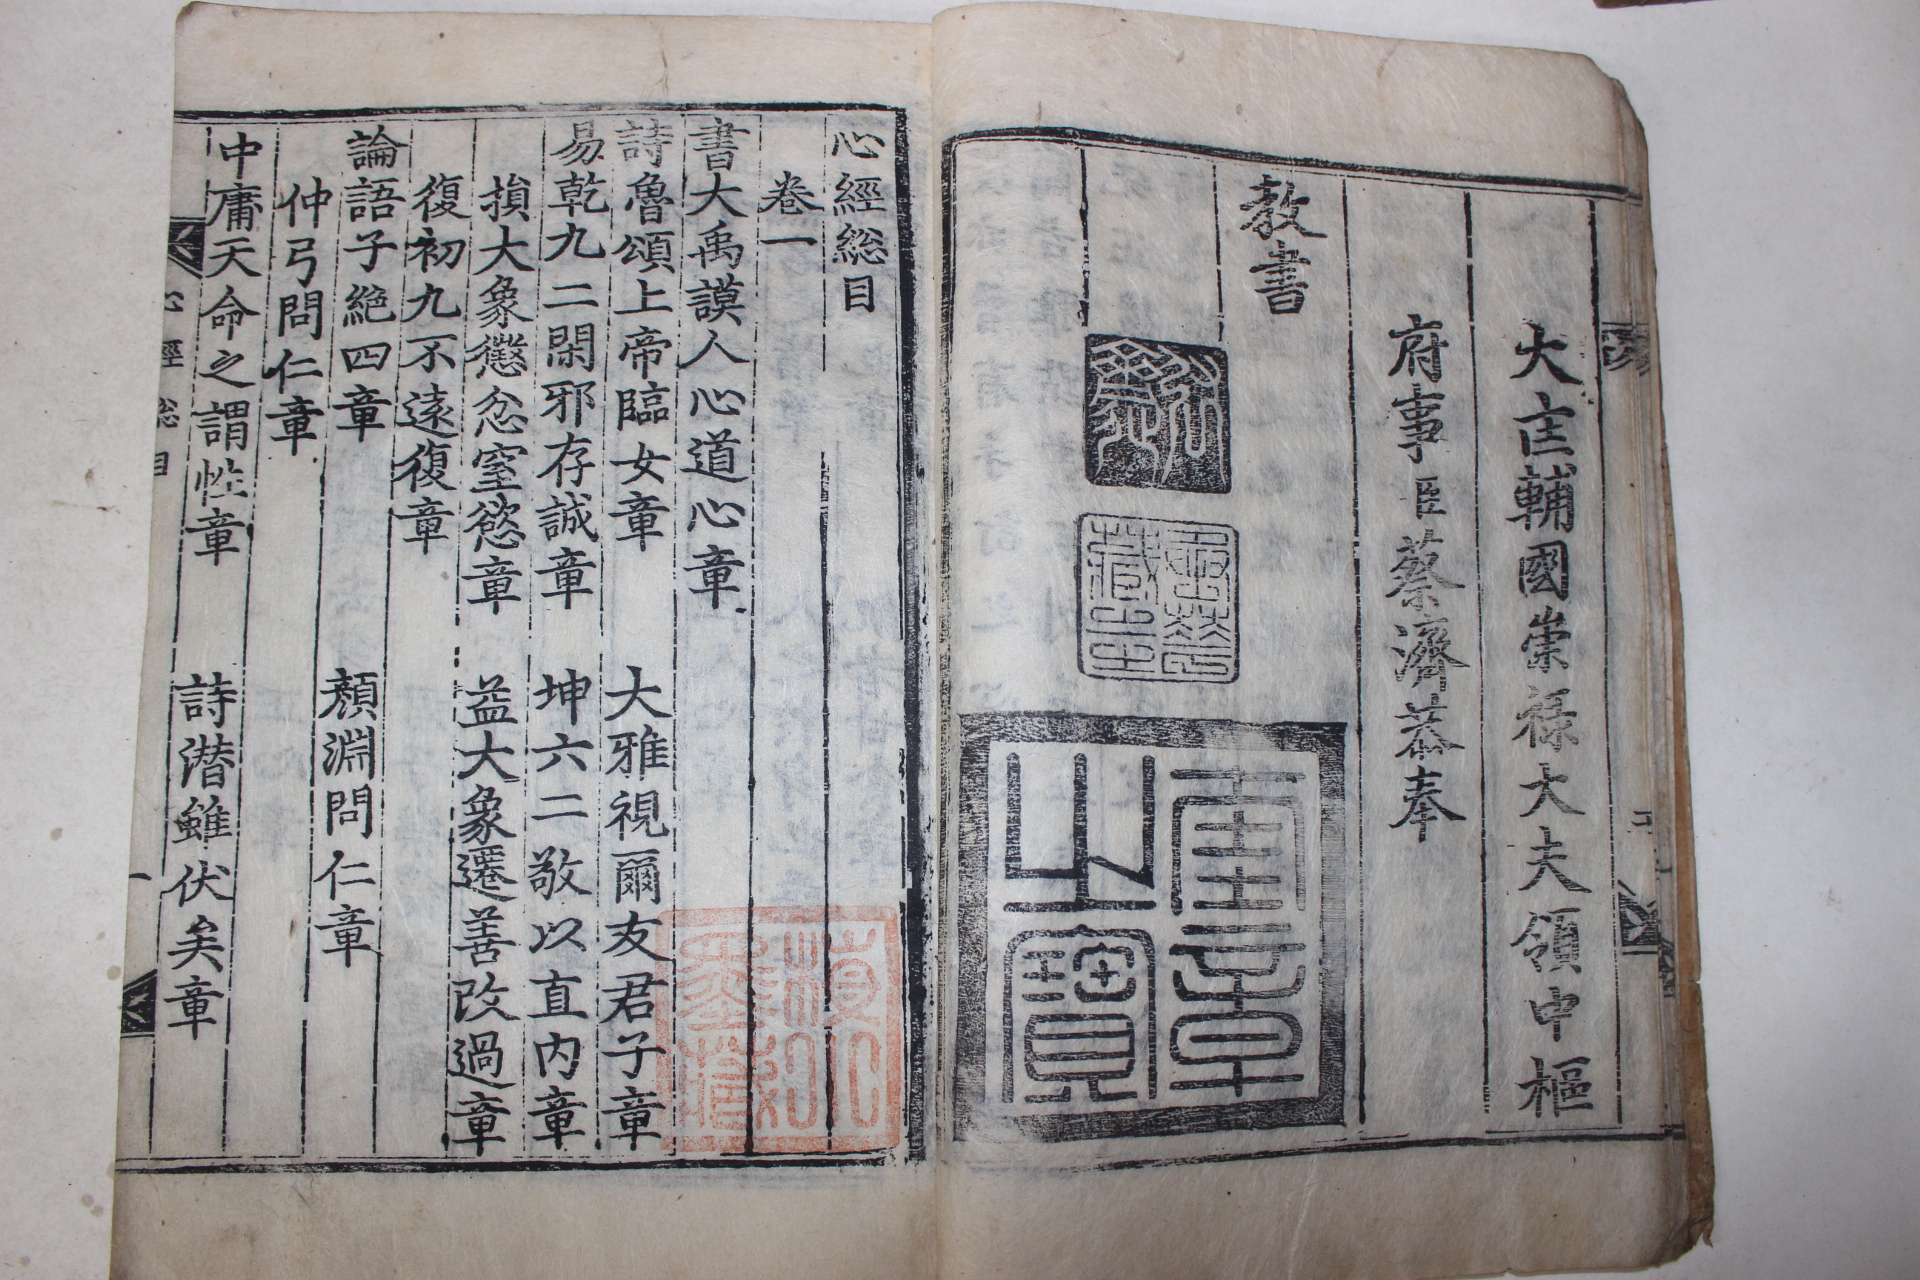 大匡輔國崇祿大夫領中樞
府事臣蔡濟恭奉
教書
奎章
之寶
心經総目
卷一
書大禹謨人心道心章
詩魯頌上帝臨女章 大雅視爾友君子章
易乾九二閑邪存誠章 坤六二敬以直內章
損大象懲忿窒慾章 益大象遷善改過章
復初九不遠復章
論語子絶四章 顏淵問仁章
仲弓問仁章
中庸天命之謂性章 詩潛雖伏矣章
心經総目 一